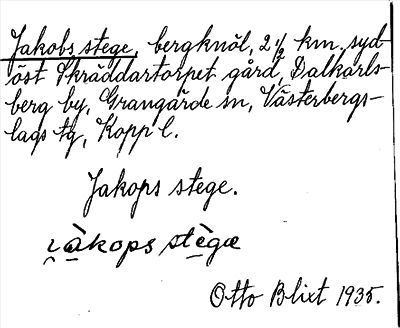 Jakobs stege, bergknöl, 2 ½ km. syd-
öst Skräddartorpet gård, Dalkarls-
berg by, Grangärde sn, Västerbergs-
lags tg, Kopp l.
Jakops stege.
i̯àkops stègæ
Otto Blixt 1935.